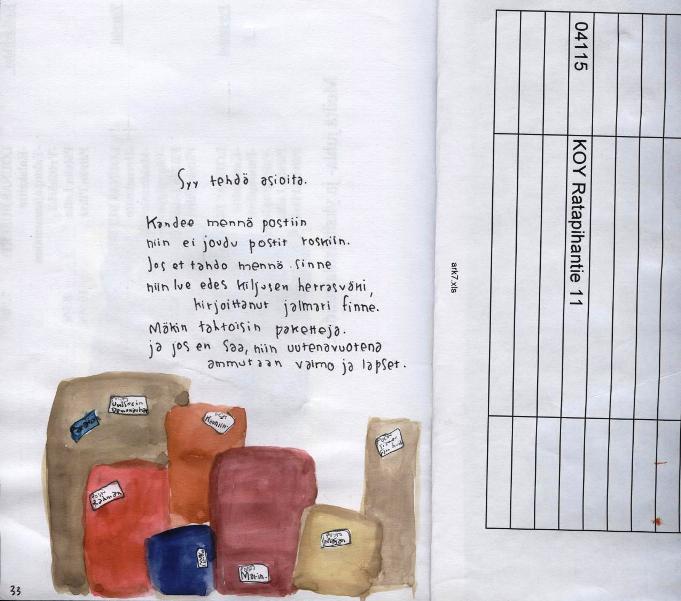 Syy tehdä asioita.
Kandee mennä postiin
niin ei joudu postit roskiin.
Jos et tahdo mennä sinne
niin lue edes Kiljusen herrasväki,
kirjoittanut jalmari finne.
Mäkin tahtoisin paketteja.
ja jos en saa, niin uutenavuotena
ammutaan vaimo ja lapset.
33
ark7.xls
04115 KOY Ratapihantie 11